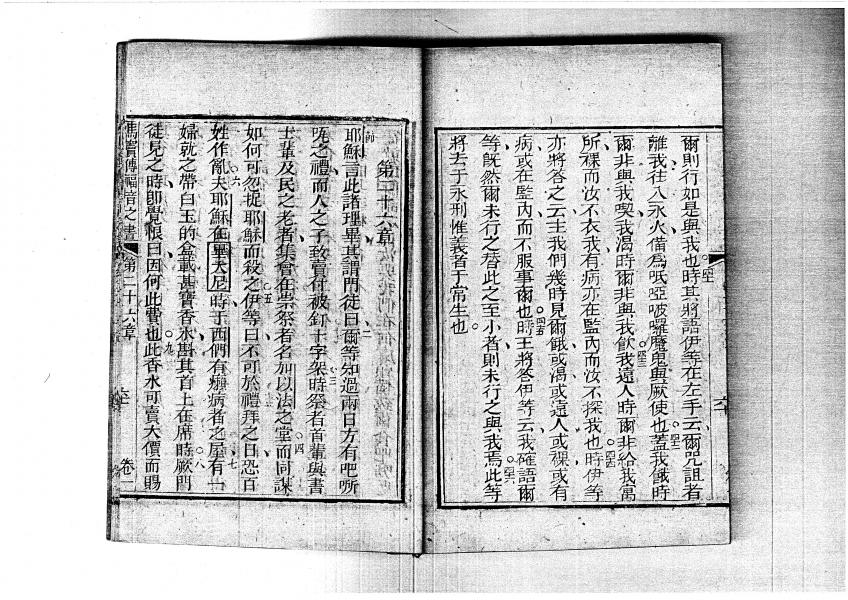 爾則行如是與我也時其將語伊等在左手云爾咒詛者
離我往入永火備為呧啞啵囉魔鬼與厥使也蓋我餓時
爾非與我喫我渴時爾非與我飲我遠人時爾非給我寓
所裸而汝不衣我有病亦在監內而汝不探我也時伊等
亦將答之云主我們幾時見爾餓或渴或遠人或裸或有
病或在監內而不服事爾也時王將答伊等云我確語爾
等既然爾未行之替此之至小者則未行之與我焉此等
將去于永刑惟義者于常生也
第二十六章
耶穌言此諸理畢其謂門徒曰爾等知過兩日方有吧
之禮而人之子致賣付被釘十字架時祭者首輩與書
士輩及民之老者集會在崇祭者名加以法之堂而同謀
如何可忽捉耶穌而殺之伊等曰不可於禮拜之日恐百
姓作亂夫耶穌在畢大尼時于西們有癩病者之屋有一
婦就之帶白玉的盒載甚寶香水斟其首上在席時厥門
徒見之時即覺恨曰因何此費也此香水可賣大價而賜
馬竇傳福音之書 第二十六章 卷一